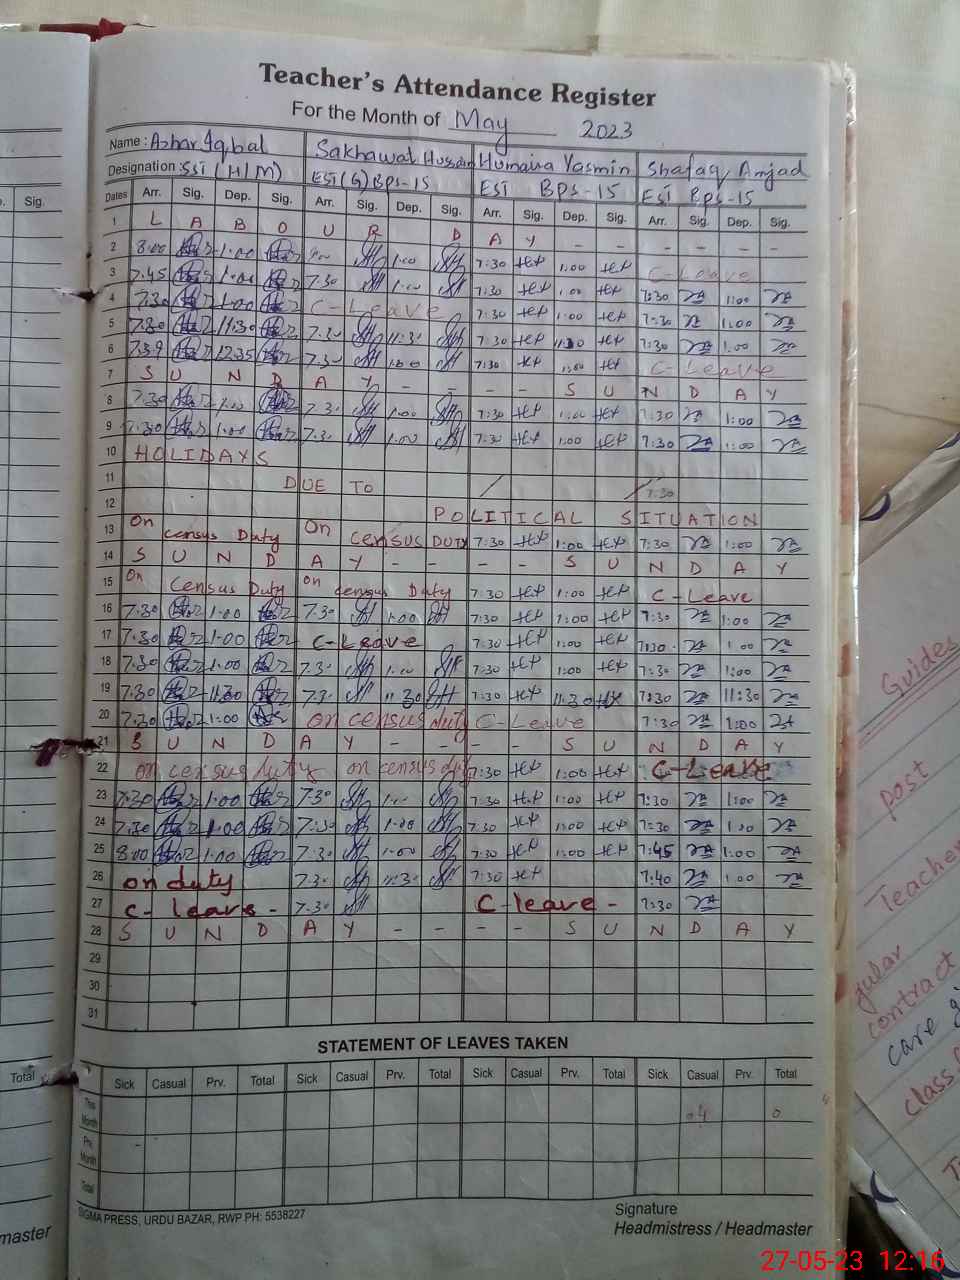 Teacher's Attendance Register
For the Month of May 2023
Name : Azhar Iqbal Sakhawat Hussain Humaira Yasmin Shafaq Amjad
Designation : SSI (H/M) ESI (G) BPS-15 ESI BPS-15 ESI BPS-15
Dates Arr. Sig. Dep. Sig. Arr. Sig. Dep. Sig. Arr. Sig. Dep. Sig. Arr. Sig. Dep. Sig.
1 L A B O U R D A Y - - - - -
2 8:00 1:00 1:00 7:30 1:00 C-Leave
3 7.45 1:00 7.30 1:00 7:30 1:00 7:30 1:00
4 7:30 1:00 C-Leave 7:30 1:00 7:30 1:00
5 7:30 11:30 7:30 11:30 7:30 11:30 7:30 1:00
6 7:39 12:35 7:30 1:00 7:30 1:00 C-Leave
7 S U N D A Y - - - - S U N D A Y
8 7:30 1:00 7:30 1:00 7:30 1:00 7:30 1:00
9 7:30 1:00 7:30 1:00 7:30 1:00 7:30 1:00
10 HOLIDAYS
11 DUE TO 7:30
12 POLITICAL SITUATION
13 On census Duty On census DUTY 7:30 1:00 7:30 1:00
14 S U N D A Y - - - - S U N D A Y
15 On Census Duty on census Duty 7:30 1:00 C-Leave
16 7:30 1:00 7:30 1:00 7:30 1:00 7:30 1:00
17 7:30 1:00 C-Leave 7:30 1:00 7:30 1:00
18 7:30 1:00 7:30 1:00 7:30 1:00 7:30 1:00
19 7:30 11:30 7:30 11:30 7:30 11:30 7:30 11:30
20 7:30 1:00 on census duty C-Leave 7:30 1:00
21 S U N D A Y - - - - S U N D A Y
22 on census duty on census duty 7:30 1:00 C-Leave
23 7:30 1:00 7:30 1:00 7:30 1:00 7:30 1:00
24 7:30 1:00 7:30 1:00 7:30 1:00 7:30 1:00
25 8:00 1:00 7:30 1:00 7:30 1:00 7:45 1:00
26 on duty 7:30 11:30 7:30 7:40 1:00
27 C-leave - 7:30 C-leave - 7:30
28 S U N D A Y - - - - S U N D A Y
29
30
31
STATEMENT OF LEAVES TAKEN
Sick Casual Prv. Total Sick Casual Prv. Total Sick Casual Prv. Total Sick Casual Prv. Total
This Month 04 0
Prv. Month -
Total
SIGMA PRESS, URDU BAZAR, RWP PH: 5538227
Signature
Headmistress / Headmaster
Sig.
Total
master
Guides
post
Teacher
gular
contract
care
class
27-05-23 12:16